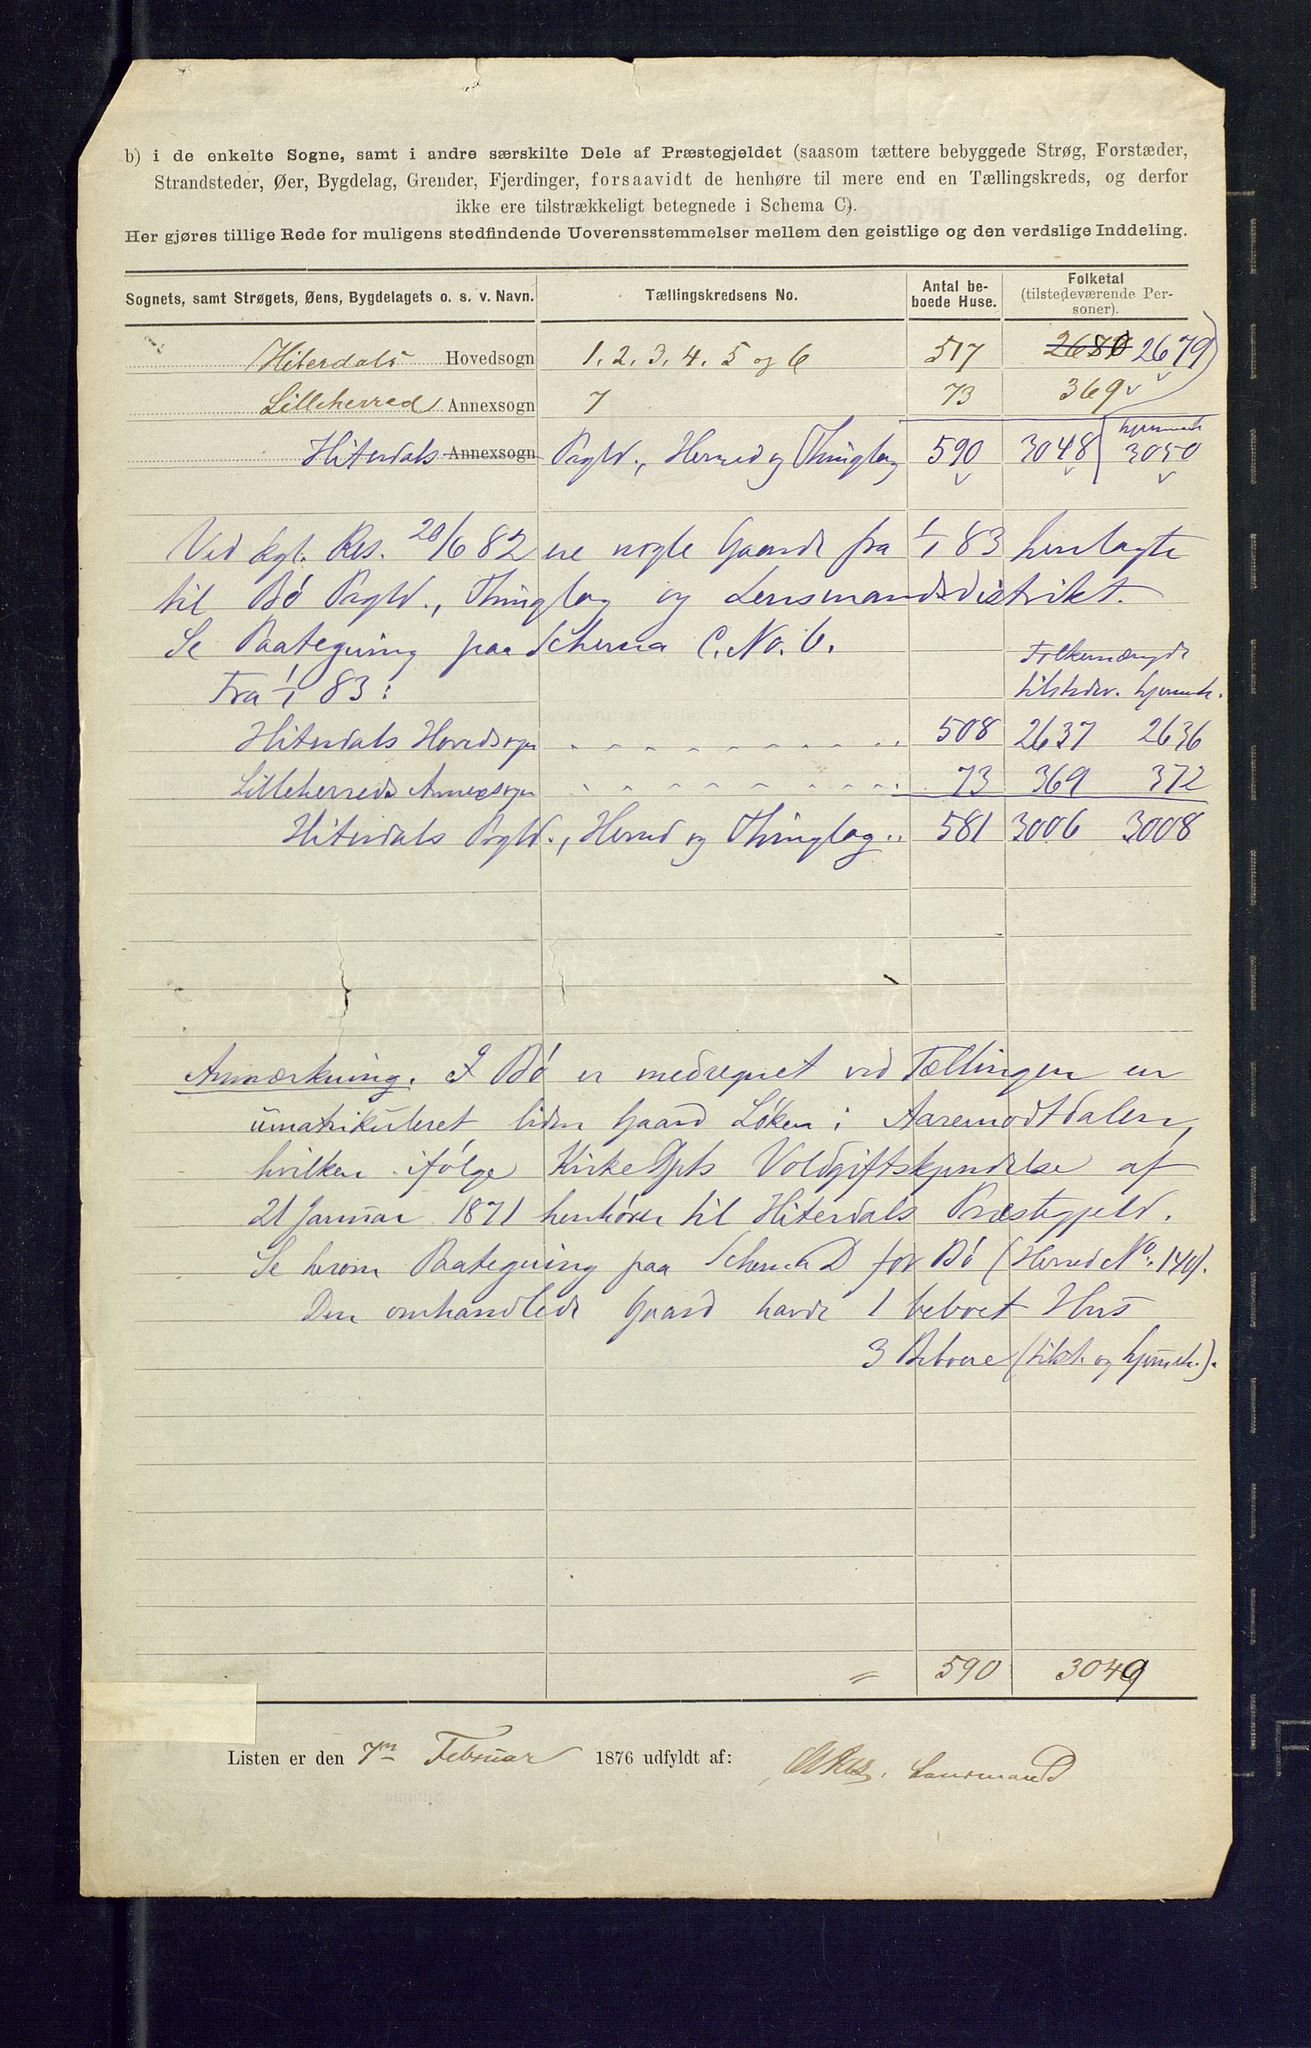 b) i de enkelte Sogne, samt i andre særskilte Dele af Præstegjeldet (saasom tættere bebyggede Strøg, Forstæder,
Strandsteder, Øer, Bygdelag, Grender, Fjerdinger, forsaavidt de henhøre til mere end en Tællingskreds, og derfor
ikke ere tilstrækkeligt betegnede i Schema C).
Her gjøres tillige Rede for muligens stedfindende Uoverensstemmelser mellem den geistlige og den verdslige Inddeling.
Sognets, samt Strøgets, Øens, Bygdelagets o. s. v. Navn. Tællingskredsens No. Antal beboede Huse. Folketal (tilstedeværende Personer).
Hiterdals Hovedsogn 1. 2. 3. 4. 5 og 6 517 2680 2679
Lilleherred Annexsogn 7 73 369
hjemmeh.
Hiterdals Annexsogn Prgld., Herred og Thinglag 590 3048 3050
Ved kgl. Res. 20/6 82 ere nogle Gaarde fra 1/1 83 henlagte
til Bø Prgld., Thinglag og Lensmandsdistrikt.
Se Paategning paa Schema C. No. 6.
Folkemængde
Fra 1/1 83: tilstedev. hjemmeh.
Hiterdals Hovedsogn 508 2637 2636
Lilleherreds Annexsogn 73 369 372
Hiterdals Prgld., Herred og Thinglag 581 3006 3008
Anmærkning. I Bø er medregnet ved Tællingen en
umatrikuleret liden Gaard Løken i Aaremodtdalen,
hvilken ifølge Kirke Dpts Voldgiftskjendelse af
21 Januar 1871 henhører til Hiterdals Præstegjeld.
Se herom Paategning paa Schema D for Bø (Herred No. 140).
Den omhandlede Gaard havde 1 beboet Hus
3 Beboere (tilst. og hjemmeh.).
" 590 3049
Listen er den 7de Februar 1876 udfyldt af: Lensmand